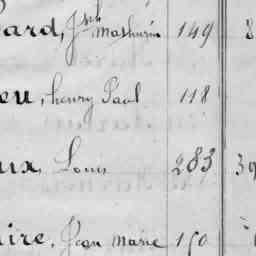 ard, Jph Mathurin 149 8
eu, henry Paul 118
ux, Louis 283 39
ire, Jean Marie 150